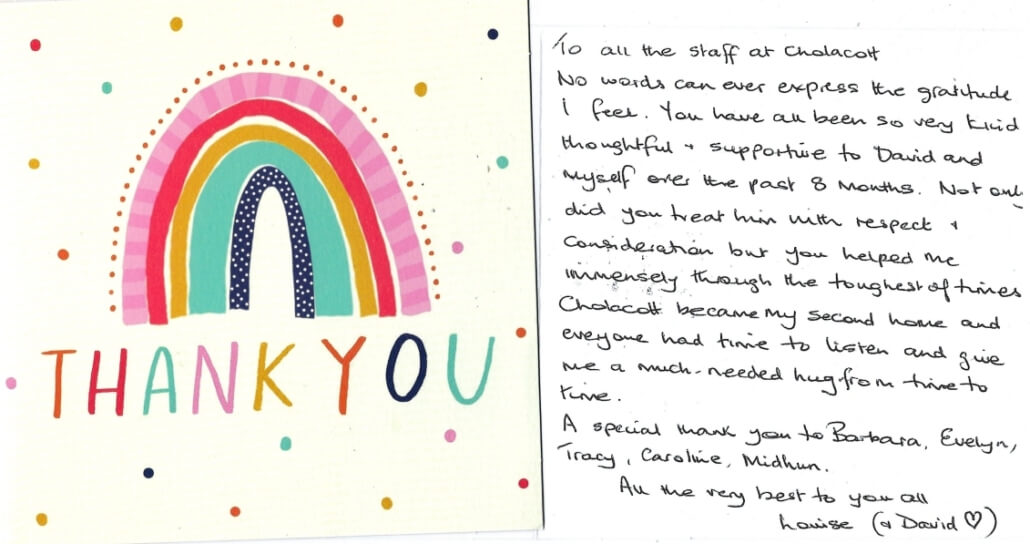 THANK YOU
To all the staff at Cholacott
No words can ever express the gratitude
I feel. You have all been so very kind
thoughtful + supportive to David and
myself over the past 8 months. Not only
did you treat him with respect +
consideration but you helped me
immensely through the toughest of times
Cholacott became my second home and
everyone had time to listen and give
me a much-needed hug from time to
time.
A special thank you to Barbara, Evelyn,
Tracy, Caroline, Midhun.
All the very best to you all
Louise (+ David ♡)